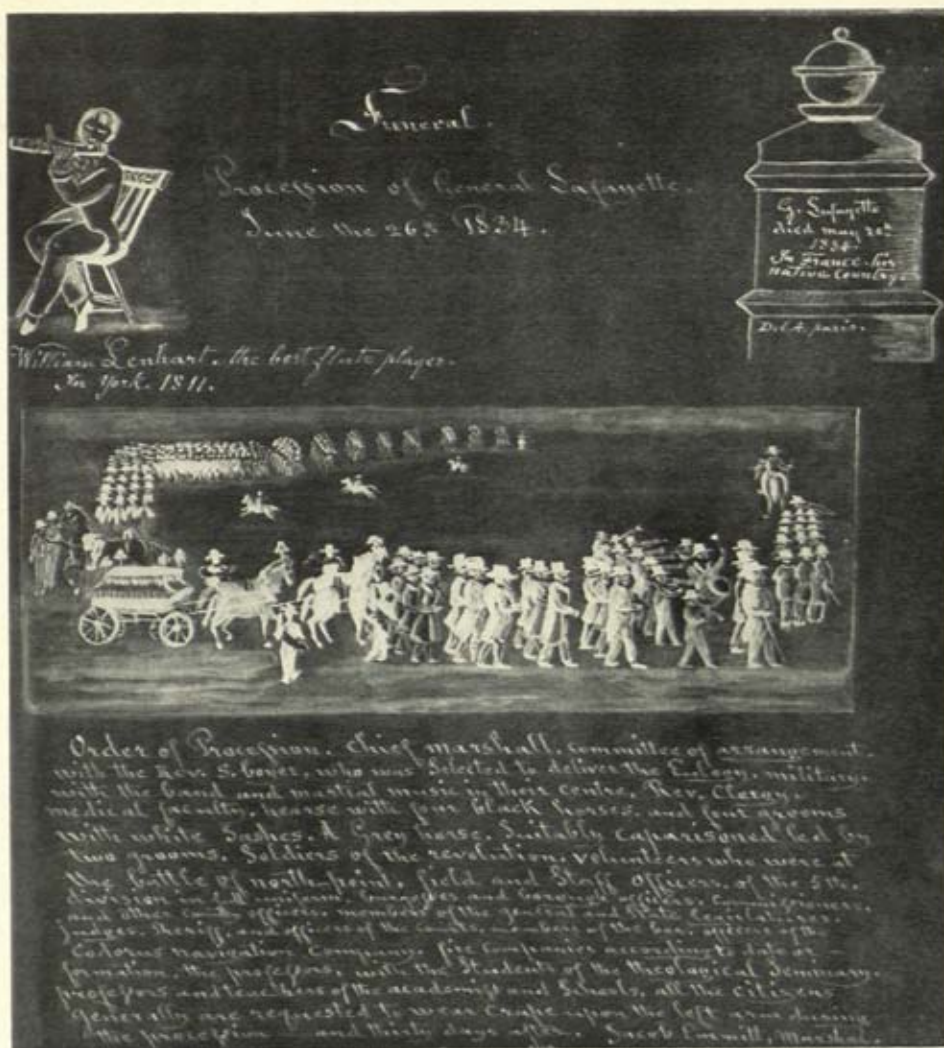 Funeral.
Procession of General Lafayette.
June the 26th 1834.
G. Lafayette
died may 20th
1834.
In France his
native Country.
D.L.A. paris.
William Lenhart. the best flute player.
In York. 1811.
Order of Procession. Chief marshall. committee of arrangement.
with the Rev. S. boyer, who was Selected to deliver the Eulogy. military.
with the band and martial music in their centre. Rev. Clergy.
medical faculty. hearse with four black horses. and four grooms
with white Sashes. A Grey horse. Suitably caparisoned led by
two grooms. Soldiers of the revolution. volunteers who were at
the battle of north-point. field and Staff officers. of the 5th.
division in full uniform. burgesses and borough officers. Commissioners.
and other county officers. members of the general and State Legislatures.
Judges. Sheriff. and officers of the courts. members of the bar. officers of the
Codorus navigation Company. fire Companies according to date of
formation. the professors. with the Students of the theological Seminary.
professors and teachers of the academies and Schools. all the citizens
generally are requested to wear crape upon the left arm during
the procession — and thirty days after. Jacob Emmitt, Marshal.